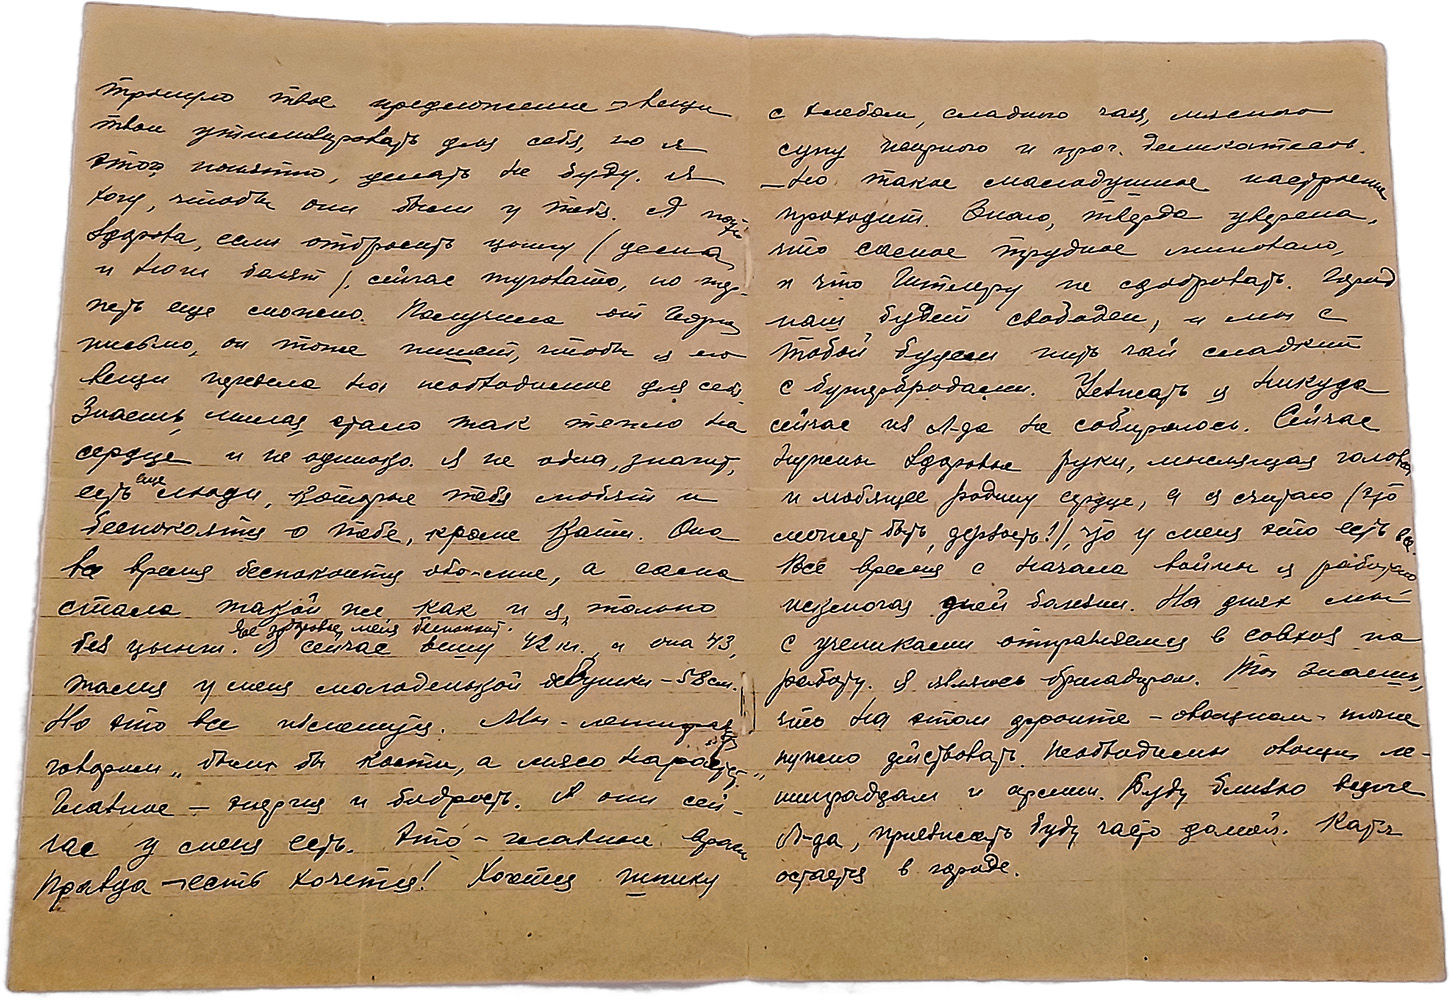 тронуло твое предложение – вещи
твои утилизировать для себя, но я
этого, понятно, делать не буду. Я
хочу, чтобы они были у тебя. Я
здорова, если отбросить цынгу (десна
и ноги болят), сейчас туговато, но тер-
петь еще можно. Получила от
письмо, он тоже пишет, чтобы я его
вещи перевела на необходимое для себя.
Знаешь, милая, стало так тепло на
сердце и не одиноко. Я не одна, значит,
есть еще люди, которые тебя любят и
беспокоятся о тебе, кроме Кати. Она
все время беспокоится обо мне, а сама
стала такой же как и я, только
без цынги. Ее здоровье меня беспокоит.
Я сейчас вешу 42 кг., а она 43,
талия у меня молоденькой девушки – 58 см.
Но это все пустяки. Мы – ленинградцы
говорим „были бы кости, а мясо нарастет„
Главное – энергия и бодрость. А они сей-
час у меня есть. Это – главное.
Правда – есть хочется! Хочется шпику
с хлебом, сладкого чая, мясного
супу жирного и проч. деликатесов.
– Но такое малодушное настроение
проходит. Знаю, твердо уверена,
что самое трудное миновало,
и что Гитлеру не сдобровать. Город
наш будет свободен, и мы с
тобой будем пить чай сладкий
с бутербродами. Уезжать я никуда
сейчас из Л-да не собираюсь. Сейчас
нужны здоровые руки, мыслящая голова
и любящее родину сердце, а я считаю (это
может быть, дерзость!), что у меня это есть все.
Все время с начала войны я работаю
исключая дней болезни. На днях мы
с учениками отправляемся в совхоз на
работу. Я являюсь бригадиром. Ты знаешь,
что на этом фронте – овощном – тоже
нужно действовать. Необходимы овощи ле-
нинградцам и армии. Буду близко возле
Л-да, приезжать буду часто домой. Катя
остается в городе.